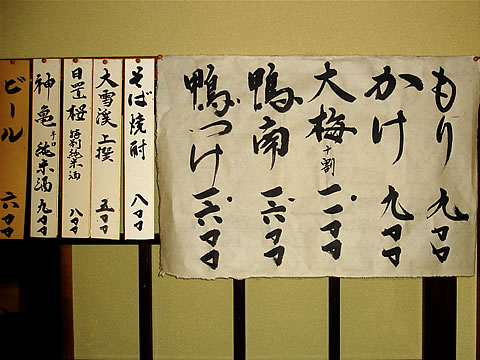 もり 九〇〇
かけ 九〇〇
大梅 十割 一一〇〇
鴨南 一六〇〇
鴨つけ 一六〇〇
そば焼酎 八〇〇
大雪渓 上撰 五〇〇
日置桜 特別純米酒 八〇〇
神亀 辛口 純米酒 九〇〇
ビール 六〇〇